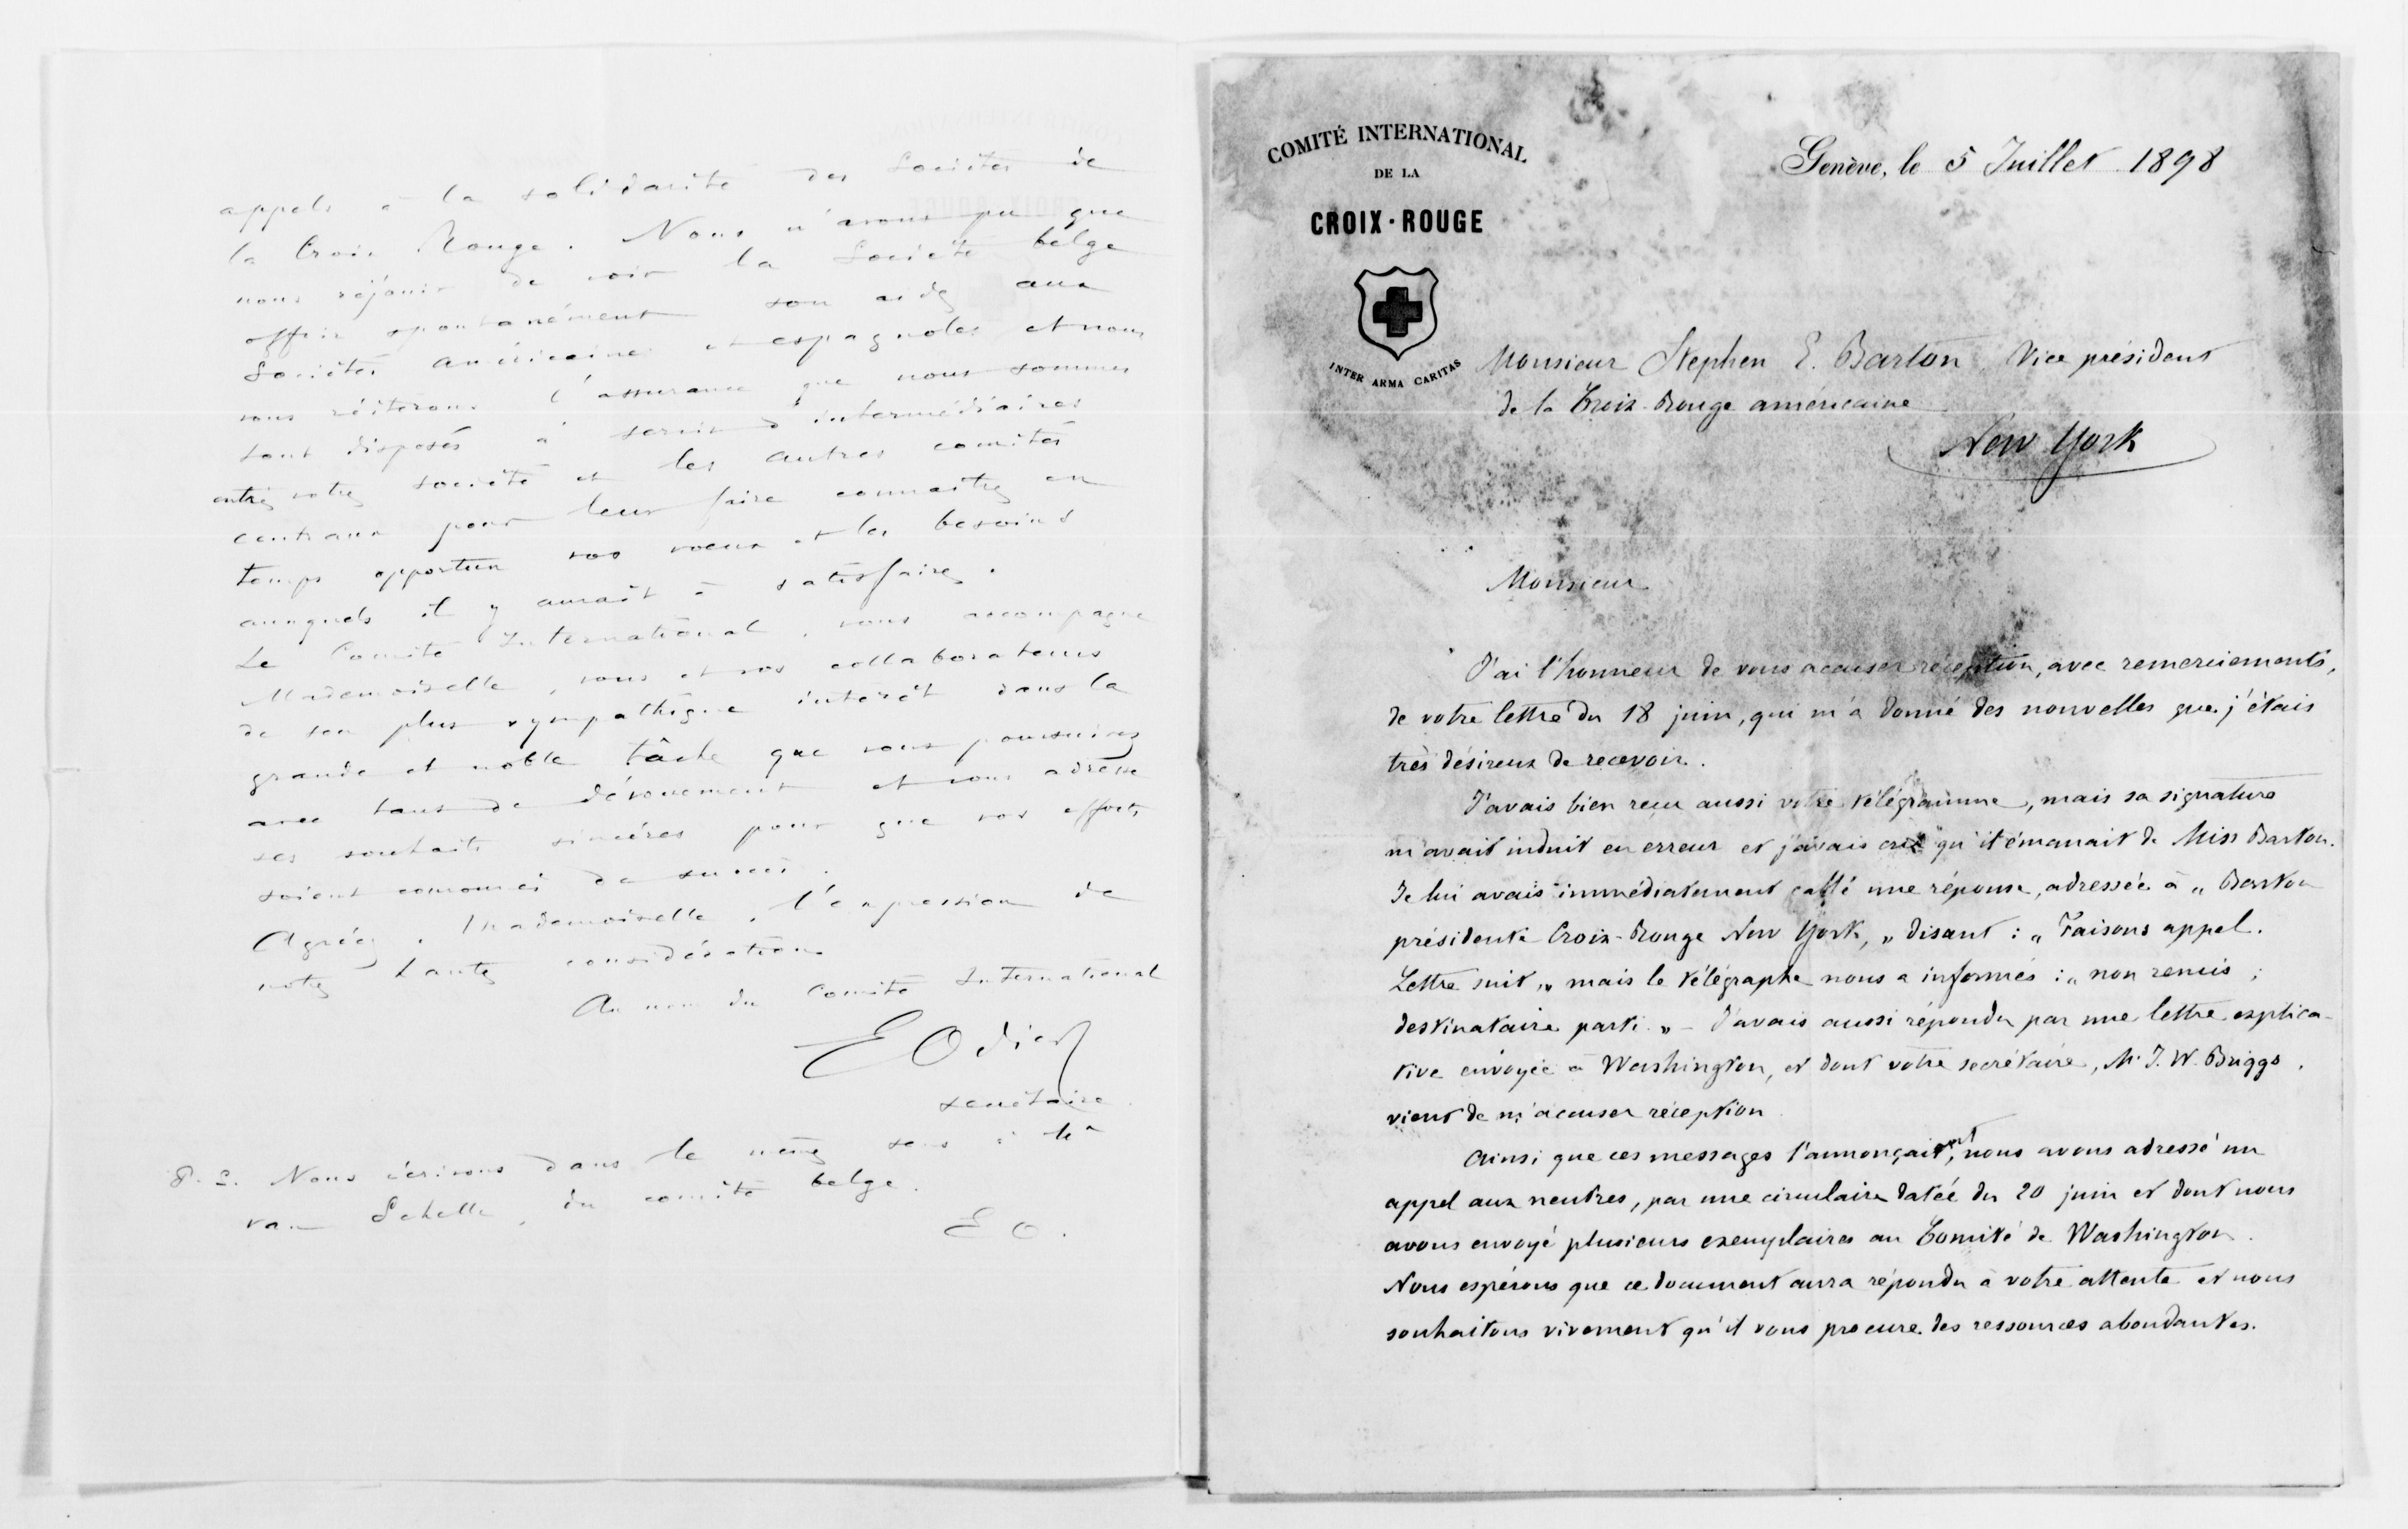 appels à la solidarité des Sociétés de
la Croix Rouge. Nous n'avons pu que
nous réjouir de voir la Société belge
offrir spontanément son aide aux
Sociétés américaine et espagnole et nous
vous réitérons l'assurance que nous sommes
tout disposés à servir d'intermédiaires
entre votre société et les autres comités
centraux pour leur faire connaître en
temps opportun vos voeux et les besoins
auxquels il y aurait à satisfaire.
Le Comité International, vous accompagne
Mademoiselle, vous et vos collaborateurs
de son plus sympathique intérêt dans la
grande et noble tâche que vous poursuivez
avec tant de dévouement et vous adresse
ses souhaits sincères pour que vos efforts
soient couronnés de succès.
Agréez, Mademoiselle, l'expression de
notre haute considération
Au nom du Comité International
E Odier
secrétaire.
P.S. Nous écrivons dans le même sens à Mr
van Schelle, du comité belge.
E O.
COMITÉ INTERNATIONAL
DE LA
CROIX-ROUGE
INTER ARMA CARITAS
Genève, le 5 Juillet 1898
Monsieur Stephen E. Barton, Vice président
de la Croix-Rouge américaine
New York
Monsieur
J'ai l'honneur de vous accuser réception, avec remerciements,
de votre lettre du 18 juin, qui m'a donné des nouvelles que j'étais
très désireux de recevoir.
J'avais bien reçu aussi votre télégramme, mais sa signature
m'avait induit en erreur et j'avais cru qu'il émanait de Miss Barton.
Je lui avais immédiatement câblé une réponse, adressée à „ Barton
présidente Croix-Rouge New York, „ disant : „ Faisons appel.
Lettre suit „ mais le télégraphe nous a informés : „ non remis ;
destinataire parti. „ – J'avais aussi répondu par une lettre explica-
tive envoyée à Washington, et dont votre secrétaire, Mr J. W. Briggs,
vient de m'accuser réception.
Ainsi que ces messages l'annonçaient, nous avons adressé un
appel aux neutres, par une circulaire datée du 20 juin et dont nous
avons envoyé plusieurs exemplaires au Comité de Washington.
Nous espérons que ce document aura répondu à votre attente et nous
souhaitons vivement qu'il vous procure des ressources abondantes.